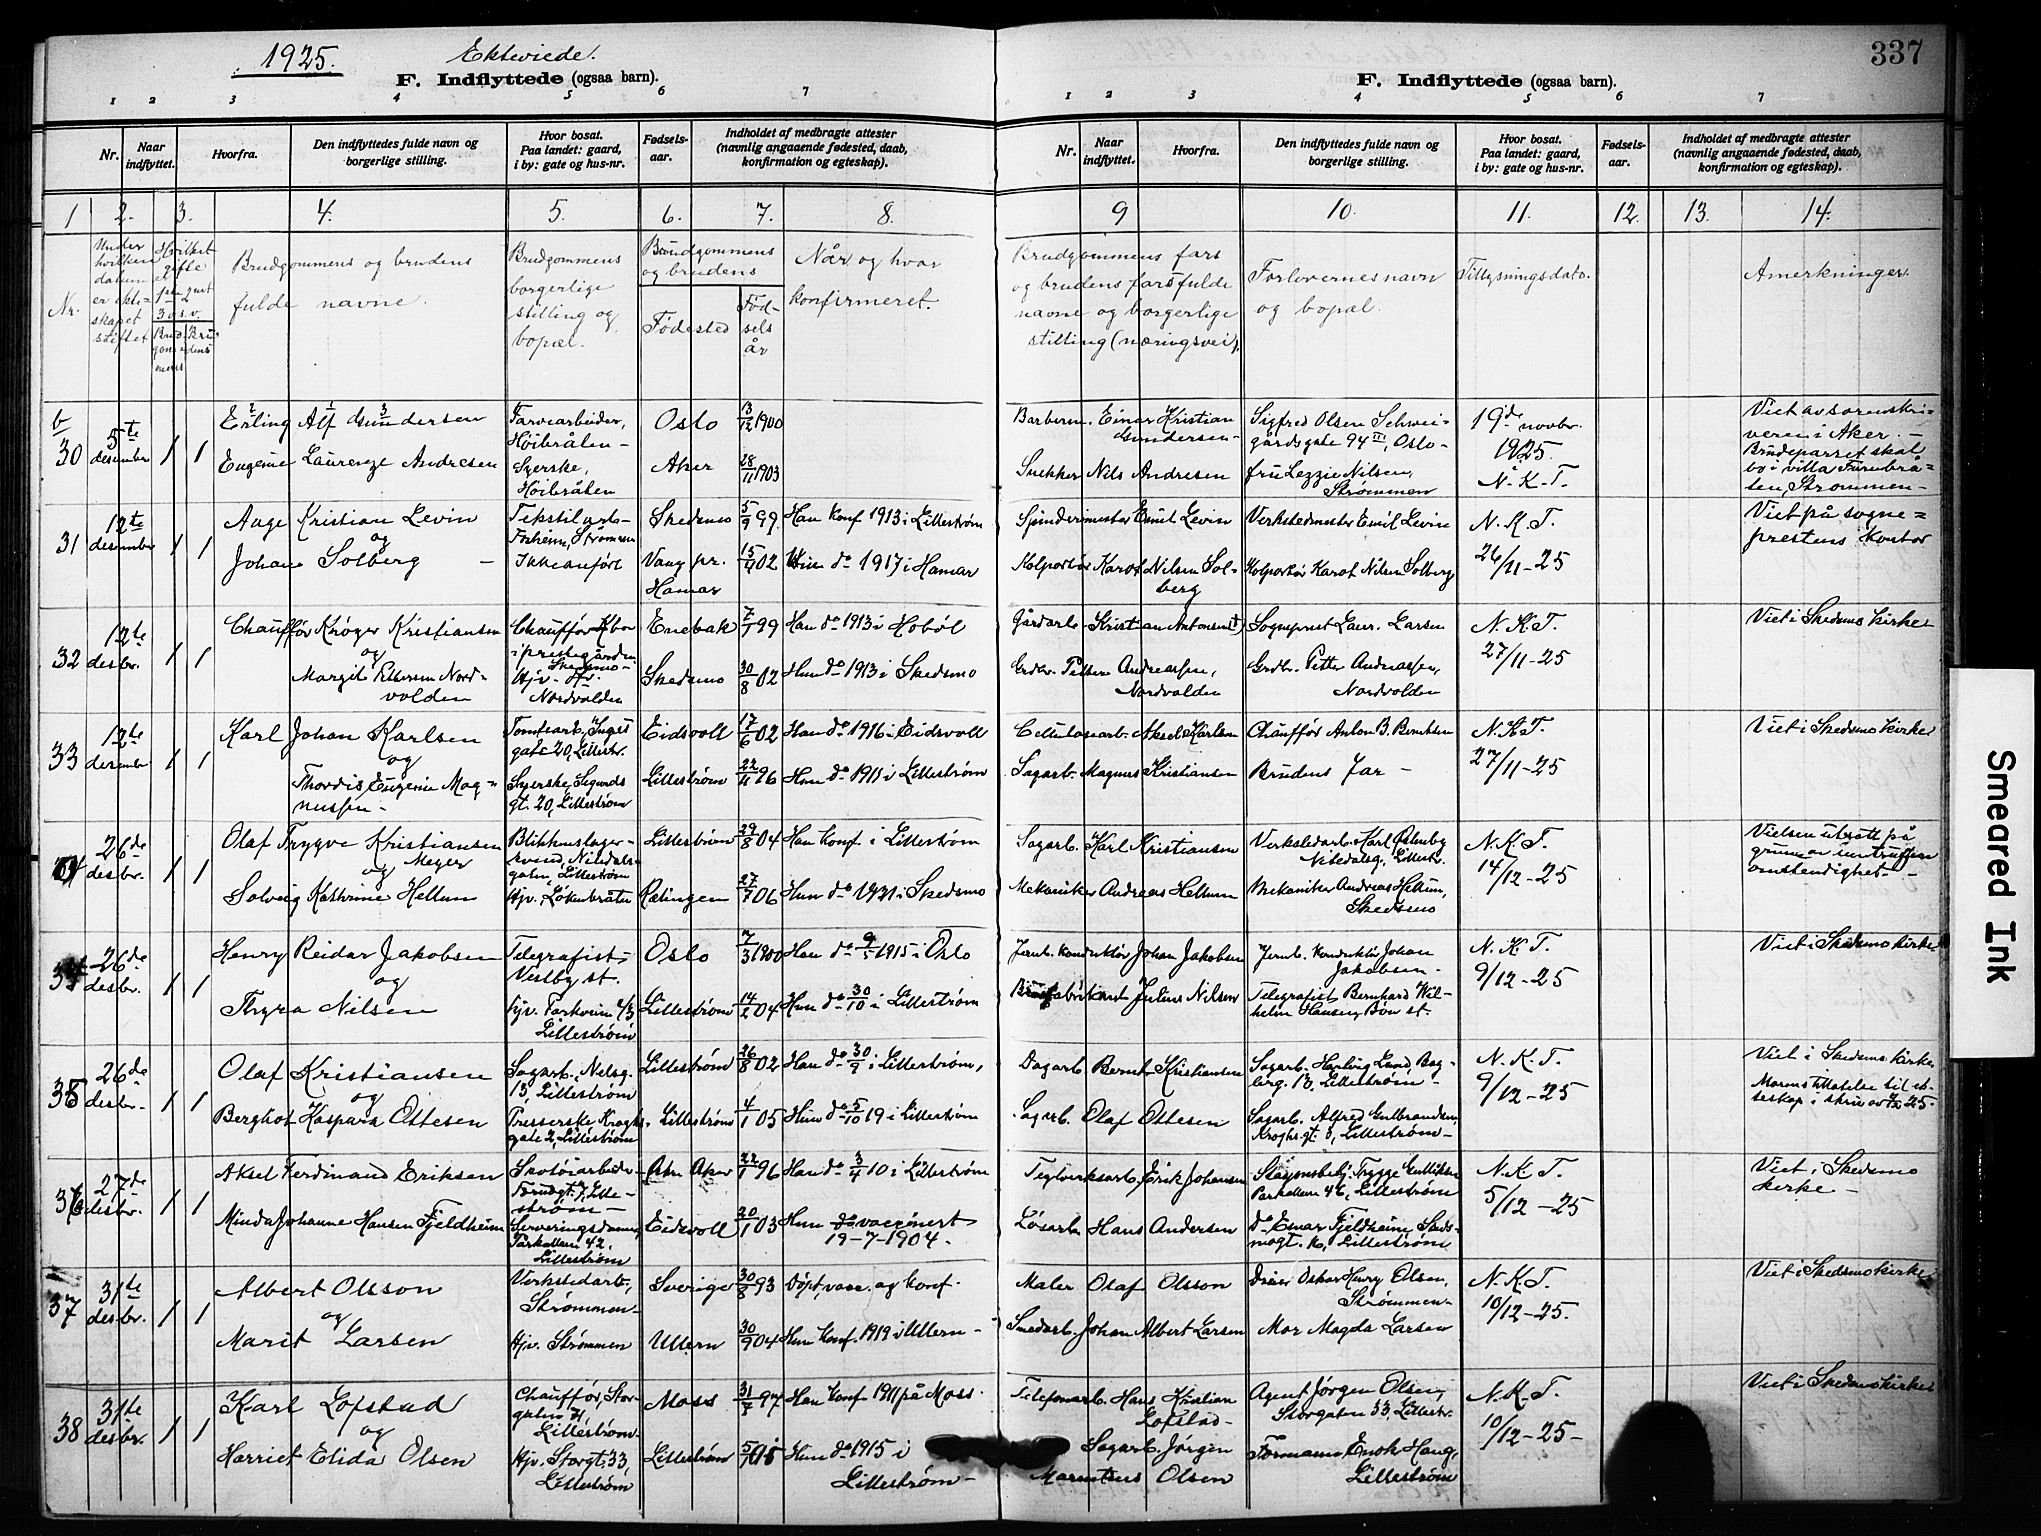 1925. Ekteviede.
F. Indflyttede (ogsaa barn).
1 2 3 4 5 6 7
Nr.
Naar indflyttet.
Hvorfra.
Den indflyttedes fulde navn og
borgerlige stilling.
Hvor bosat.
Paa landet: gaard,
i by: gate og hus-nr.
Fødsels-
aar.
Indholdet af medbragte attester
(navnlig angaaende fødested, daab,
konfirmation og egteskap).
1 2. 3. 4. 5. 6. 7. 8.
Nr.
Under
hvilken
datum
er ekte-
skapet
stiftet
Hvilket
gifte
1ste 2net
3 o.s.v.
Brud-
gom-
mens
Bru-
dens
Brudgommens og brudens
fulde navne.
Brudgommens
borgerlige
stilling og
bopæl.
Brudgommens
og brudens
Fødested
Fød-
sels
år
Når og hvor
konfirmeret.
b/30 5te desember 1 1
Erling Alf Gundersen
Eugenie Laurenze Andresen
Farvearbeider,
Høibråten -
Syerske,
Høibråten
Oslo 13/12 1900
Aker 28/11 1903
31 12te desember 1 1
Aage Kristian Levin
og
Johane Solberg -
Skedsmo 5/9 99 Han konf 1913 i Lillestrøm
Ikke anført
Vang pr. Hamar 15/4 02 Hun do 1917 i Hamar
32 12te desbr. 1 1
Chauffør Krøger Kristiansen
og
Margit Pettersen Nord-
volden
Chauffør
i prestegården
Skedsmo -
Nordvolden
Enebak 7/1 99 Han do 1913 i Hobøl
Skedsmo 30/8 02 Hun do 1913 i Skedsmo
33 12te desember 1 1
Karl Johan Karlsen
og
Thordis Eugenie Mag-
nussen -
Tomtearb., Inges
gate 20, Lillestr.
Syerske, Sigurds
gt. 20, Lillestrøm
Eidsvoll 17/6 02 Han do 1916 i Eidsvoll
Lillestrøm 22/11 96 Hun do 1911 i Lillestrøm
26de desbr. 1 1
Olaf Trygve Kristiansen
og Meyer
Solveig Kathrine Hellum
Blikkenslager-
Nitedals-
gaten, Lillestrøm
Hjv., Løkenbråten
Lillestrøm 29/8 04 Han konf i Lillestrøm
Rælingen 27/7 06 Hun do 1921 i Skedsmo
34 26de desbr. 1 1
Henry Reidar Jakobsen
og
Thyra Nilsen
Telegrafist,
Vestby st.
Hjv. Parkveien 43
Lillestrøm
Oslo 7/3 1900 Han do 1915 i Oslo
Lillestrøm 14/2 04 Hun do 30/10 i Lillestrøm
35 26de desbr. 1 1
Olaf Kristiansen
og
Berghot Kaspara Ottesen
Sagarb., Nelsg.
13, Lillestrøm
Presserske Kroghs
gate 2, Lillestrøm
Lillestrøm 26/8 02 Han do 30/9 i Lillestrøm,
Lillestrøm 4/1 05 Hun do 5/10 19 i Lillestrøm
36 27de desbr. 1 1
Aksel Ferdinand Eriksen
Minda Johanne Hansen Fjeldheim
Skotøiarbeider
strøm -
Serveringsdame,
Parkalleen 42,
Lillestrøm
Aker 22/1 96 Han do 3/4 10 i Lillestrøm
Eidsvoll 20/1 03 Hun do vaccinert
19-7-1904.
37 31te desbr. 1 1
Albert Olsson
og
Marit Larsen
Verkstedarb.,
Strømmen -
Hjv. Strømmen
Sverige 30/8 93 Døpt, vacc. og konf.
Ullern 30/9 04 Hun konf. 1919 i Ullern -
38 31te desbr. 1 1
Karl Lofstad
og
Harriet Elida Olsen
Chauffør, Stor-
gaten
Lillestrøm -
Hjv. Storgt. 33,
Lillestrøm
Moss 97 Han konf 1911 på Moss.
Lillestrøm Hun do 1915 i
Lillestrøm -
337
F. Indflyttede (ogsaa barn).
1 2 3 4 5 6 7
Nr.
Naar
indflyttet.
Hvorfra.
Den indflyttedes fulde navn og
borgerlige stilling.
Hvor bosat.
Paa landet: gaard,
i by: gate og hus-nr.
Fødsels-
aar.
Indholdet af medbragte attester
(navnlig angaaende fødested, daab,
konfirmation og egteskap).
9 10. 11. 12. 13. 14.
Brudgommens fars
og brudens fars fulde
navne og borgerlige
stilling (næringsvei).
Forlovernes navn
og bopæl.
Tillysningsdato.
Anmerkninger.
Barberm. Einar Kristian
Gundersen -
Snekker Nils Andresen
Sigfred Olsen Schwei-
gårdsgate 94 III, Oslo -
fru Lezzie Nilsen,
Strømmen
19de novbr.
1925.
N.K.T.
Viet av sorenskri-
veren i Aker. -
Brudeparret skal
bo i villa Furubrå-
ten, Strømmen -
Spinderimester Emil Levin
Kolportør Karot Nilsen Sol-
berg
Verkstedmester Emil Levin
Kolportør Karot Nilsen Solberg
N.K.T.
26/11-25
Viet på sogne-
prestens kontor
Gårdarb. Kristian Antonsen
Grdbr. Petter Andreassen,
Nordvolden
Sogneprest Laur. Larsen
Grdbr. Petter Andreassen,
Nordvolden
N.K.T.
27/11-25
Viet i Skedsmo kirke
Cellulosearb. Aksel Karlsen
Sagarb. Magnus Kristiansen
Chauffør Anton B. Berntsen
Brudens far -
N.K.T.
27/11-25
Viet i Skedsmo kirke
Sagarb. Karl Kristiansen
Mekaniker Andreas Hellum
Verkstedarb. Karl Østenby
Nitedalsg., Lillestr.
Mekaniker Andreas Hellum,
Skedsmo
N.K.T.
14/12-25
Vielsen utsatt på
grunn av inntruffen
omstendighet -
Jernb. konduktør Johan Jakobsen
Brusfabrikant Julius Nilsen
Jernb. konduktør Johan
Jakobsen -
Telegrafist Bernhard Wil-
helm Hansen, Bøn st.
N.K.T.
9/12-25
Viet i Skedsmo kirke
Dagarb. Bernt Kristiansen
Sagarb. Olaf Ottesen
Sagarb. Hartvig Lund, Bag-
berg. 13, Lillestrøm -
Sagarb. Alfred Gulbrandsen,
Kroghs gt. 3, Lillestrøm -
N.K.T.
9/12-25
Viet i Skedsmo kirke
Morens tillatelse til ek-
teskap i skriv av 25.
Teglverksarb. Erik Johansen
Løsarb. Hans Andersen
Stasjonsbetj. Trygge Gulliksen
Parkalleen 46, Lillestrøm
do Einar Fjeldheim,
Lillestrøm
N.K.T.
5/12-25
Viet i Skedsmo
kirke -
Maler Olaf Olsson
Smedarb. Johan Albert Larsen
Dreier Oskar Henry Olsen,
Strømmen -
Mor Magda Larsen
N.K.T.
10/12-25.
Viet i Skedsmo kirke
Telefonarb. Hans Kristian
Lofstad -
Sagarb. Jørgen
Marentius Olsen
Agent Jørgen Olsen,
Storgaten 33, Lillestr.
Formann Enok Haug,
Lillestrøm
N.K.T.
10/12-25-
Viet i Skedsmo kirke
Smeared Ink